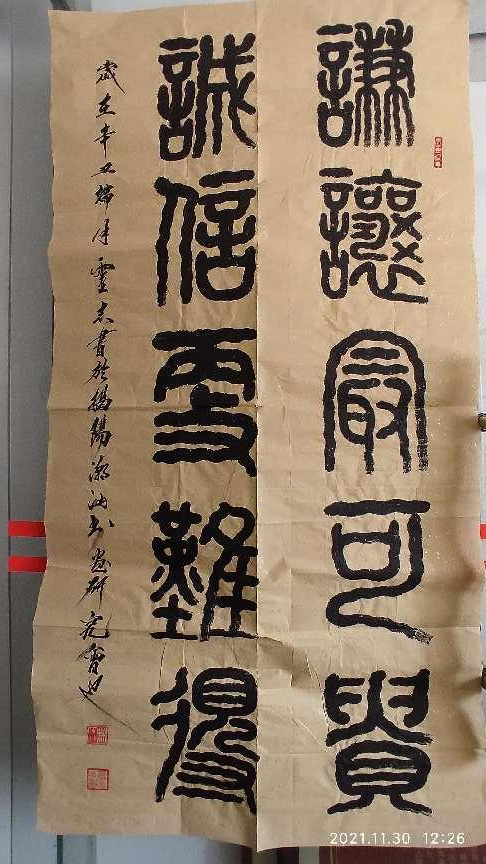 謙讓最可貴
誠信更難得
歲在辛丑端月靈志書於揭陽潮汕書畫研究會也
2021.11.30 12:26